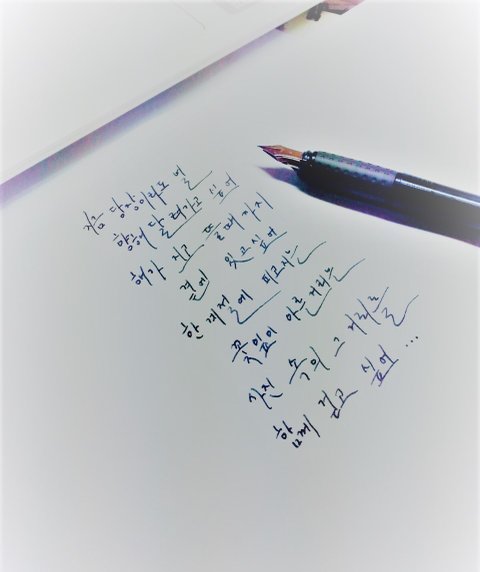 지금 당장이라도 널
향해 달려가고 싶어
해가 지고 뜰 때까지
곁에 있고 싶어
한 계절에 피고지는
꽃잎이 아른거리는
사진 속의 그 거리를
함께 걷고 싶어...